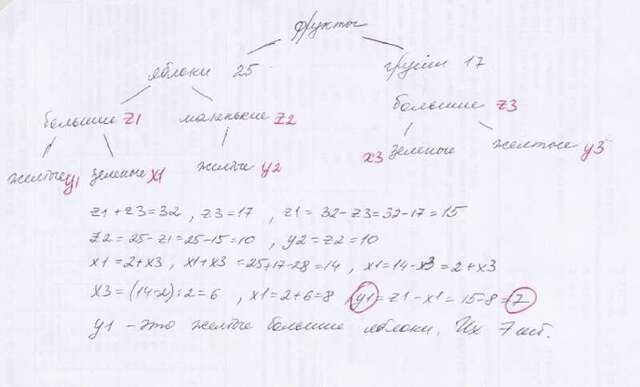 фрукты
яблоки 25 груши 17
большие z1 маленькие z2 большие z3
желтые y1 зеленые x1 желтые y2 x3 зеленые желтые y3
z1 + z3 = 32 , z3 = 17 , z1 = 32 - z3 = 32 - 17 = 15
z2 = 25 - z1 = 25 - 15 = 10 , y2 = z2 = 10
x1 = 2 + x3 , x1 + x3 = 25 + 17 - 28 = 14 , x1 = 14 - x3 = 2 + x3
x3 = (14 - 2) : 2 = 6 , x1 = 2 + 6 = 8 , y1 = z1 - x1 = 15 - 8 = 7
y1 - это желтые большие яблоки. Их 7 шт.